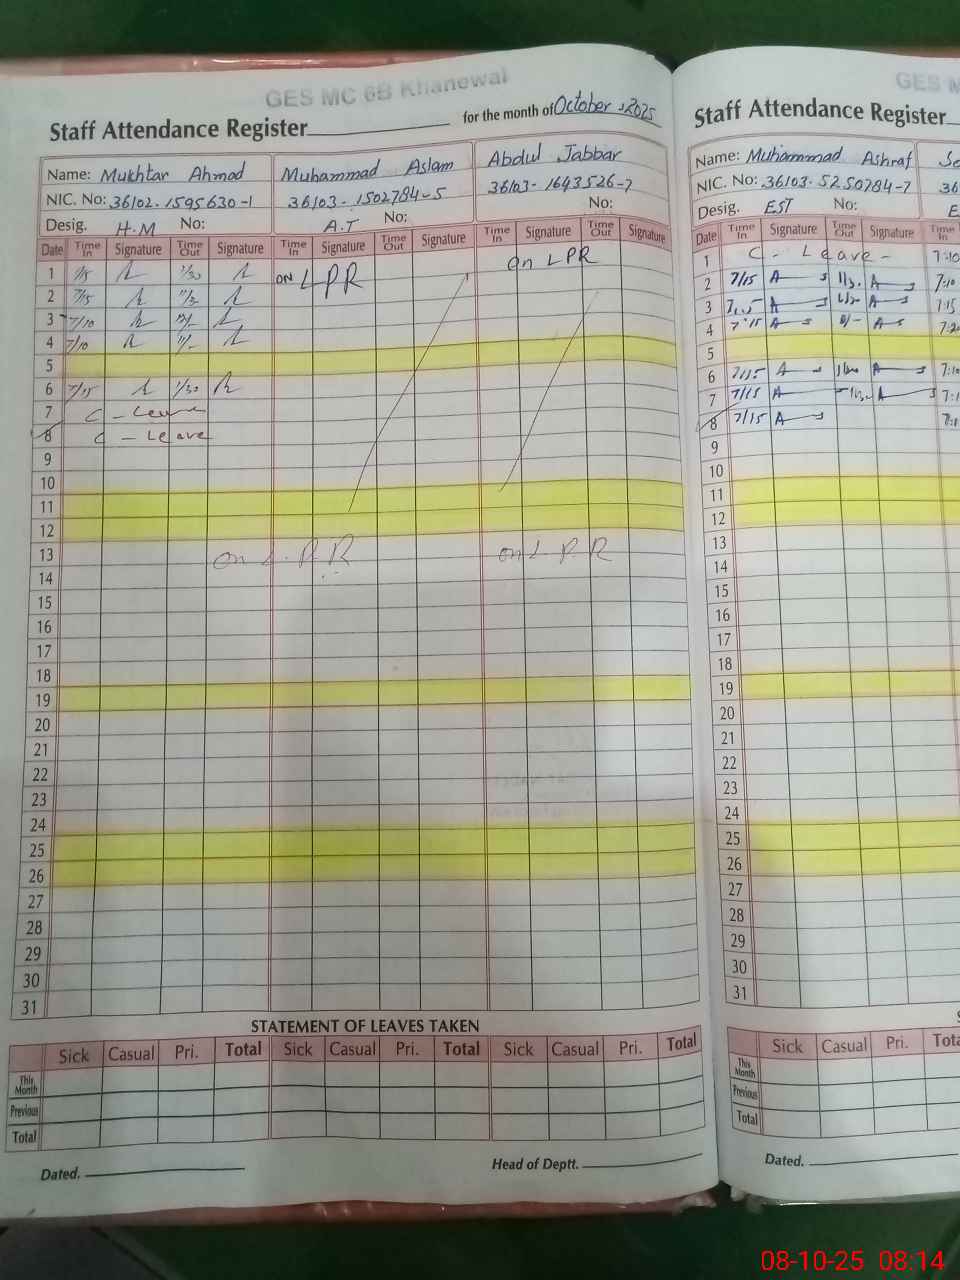 GES MC 6B Khanewal
Staff Attendance Register for the month of October, 2025
Name: Mukhtar Ahmad Muhammad Aslam Abdul Jabbar
NIC. No: 36102-1595630-1 36103-1502784-5 36103-1643526-7
Desig. H.M No: A.T No: No:
Date Time In Signature Time Out Signature Time In Signature Time Out Signature Time In Signature Time Out Signature
1 7/15 1/30 ON LPR On LPR
2 7/15
3 7/10
4 7/10
5
6 7/15 1/30
7 C - Leave
8 C - Leave
9
10
11
12
13 on L.P.R on L.P.R
14
15
16
17
18
19
20
21
22
23
24
25
26
27
28
29
30
31
STATEMENT OF LEAVES TAKEN
Sick Casual Pri. Total Sick Casual Pri. Total Sick Casual Pri. Total
This Month
Previous
Total
Dated. Head of Deptt.
GES M
Staff Attendance Register
Name: Muhammad Ashraf
NIC. No: 36103-5250784-7 36
Desig. EST No: E
Date Time In Signature Time Out Signature Time In
1 C - Leave - 7:10
2 7/15 7:10
3 7:15
4 7:15 7:20
5
6 7/15 7:10
7 7/15
8 7/15
9
10
11
12
13
14
15
16
17
18
19
20
21
22
23
24
25
26
27
28
29
30
31
Sick Casual Pri.
This Month
Previous
Total
Dated.
08-10-25 08:14